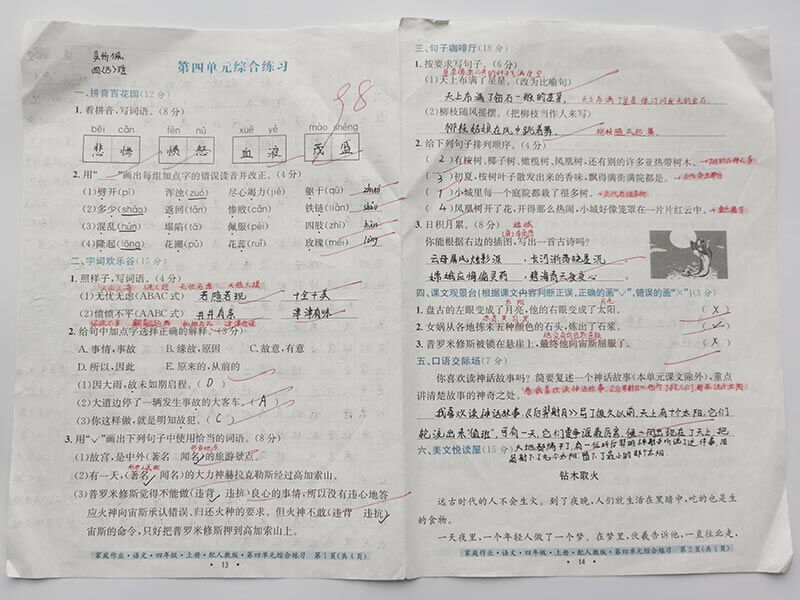 四(5)班
第四单元综合练习
98
一、拼音百花园(12分)
1.看拼音,写词语。(8分)
bēi cǎn fèn nù xuè yè mào shèng
悲惨 愤怒 血液 茂盛
2.用“﹏”画出每组加点字的错误读音并改正。(4分)
(1)劈开(pī) 浑浊(zuó) 尽心竭力(jié) 躯干(qū) zhuó
(2)多少(shǎo) 返回(fǎn) 惨败(cǎn) 铁链(liàn)
(3)混乱(hùn) 塌陷(tā) 佩服(pèi) 四肢(zhī)
(4)隆起(lōng) 花圃(pǔ) 花蕊(ruǐ) 玫瑰(méi) lóng
二、字词欢乐谷(15分)
1.照样子,写词语。(4分)
(1)无忧无虑(ABAC式) 若隐若现 十全十美
(2)愤愤不平(AABC式) 井井有条 津津有味
2.给句中加点字选择正确的解释。(3分)
A.事情,事故 B.缘故,原因 C.故意,有意
D.所以,因此 E.原来的,从前的
(1)因大雨,故未如期启程。( D )
(2)大道边停了一辆发生事故的大客车。( A )
(3)你这样做,就是明知故犯。( C )
3.用“✓”画出下列句子中使用恰当的词语。(8分)
(1)故宫,是中外(著名 闻名)的旅游景点。
(2)有一天,(著名 闻名)的大力神赫拉克勒斯经过高加索山。
(3)普罗米修斯觉得不能做(违背 违抗)良心的事情,所以没有违心地答
应火神向宙斯承认错误、归还火种的要求。但火神不敢(违背 违抗)
宙斯的命令,只好把普罗米修斯押到高加索山上。
家庭作业·语文·四年级·上册·配人教版·第四单元综合练习 第1页(共4页)
·13·
三、句子咖啡厅(18分)
1.按要求写句子。(6分)
(1)天上布满了星星。(改为比喻句)
天上布满了钻石一般的星星。
(2)柳枝随风摇摆。(把柳枝当作人来写)
柳枝姑娘在风中跳着舞。
2.给下列句子排列顺序。(4分)
( 2 )有桉树、椰子树、橄榄树、凤凰树,还有别的许多亚热带树木。
( 3 )初夏,桉树叶子散发出来的香味,飘得满街满院都是。
( 1 )小城里每一个庭院都栽了很多树。
( 4 )凤凰树开了花,开得那么热闹,小城好像笼罩在一片片红云中。
3.日积月累。(8分)
你能根据右边的插图,写出一首古诗吗?
云母屏风烛影深,长河渐落晓星沉。
嫦娥应悔偷灵药,碧海青天夜夜心。
四、课文观景台(根据课文内容判断正误,正确的画“✓”,错误的画“×”)(3分)
1.盘古的左眼变成了月亮,他的右眼变成了太阳。 ( × )
2.女娲从各地拣来五种颜色的石头,炼出了石浆。 ( ✓ )
3.普罗米修斯被锁在悬崖上,最终他向宙斯屈服了。 ( × )
五、口语交际场(7分)
你喜欢读神话故事吗?简要复述一个神话故事(本单元课文除外),重点
讲清楚故事的神奇之处。
我喜欢读神话故事。《后羿射日》写了很久以前,天上有十个太阳,它们
轮流出来“值班”,可有一天,它们
六、美文悦读屋(15分)
钻木取火
远古时代的人不会生火。到了夜晚,人们就生活在黑暗中,吃的也是生
的食物。
一天夜里,一个年轻人做了个梦。在梦里,伏羲告诉他,一直往北走,
家庭作业·语文·四年级·上册·配人教版·第四单元综合练习 第2页(共4页)
·14·